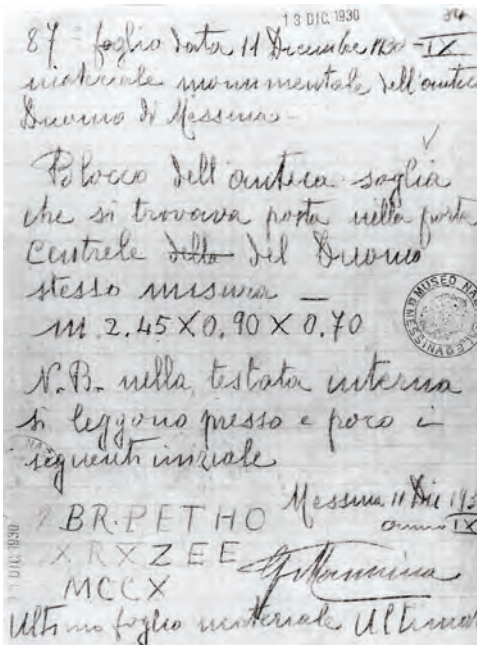 13 DIC. 1930
87 - foglio data 11 Dicembre 1930 - IX
materiale monumentale dell'antico
Duomo di Messina -
Blocco dell'antica soglia
che si trovava posta nella porta
Centrele della del Duomo
stesso misura -
m. 2.45 X 0.90 X 0.70
MUSEO NAZ MESSINA
N.B. nella testata interna
si leggono presso e poco i
seguenti iniziale
Messina 11 Dic 193
anno IX
BR. PETHO
X R X Z E E
MCCX
Ultimo foglio materiale Ultimat